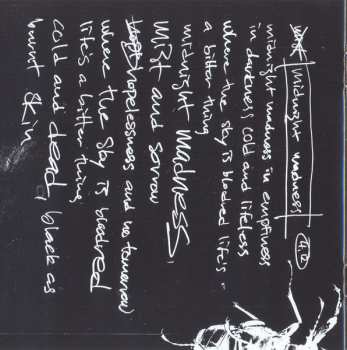 midnight madness
midnight madness in emptiness
in darkness cold and lifeless
where the sky is bloodred life's
a bitter thing
midnight madness,
mist and sorrow
hopelessness and no tomorrow
where the sky is bloodred
life's a bitter thing
cold and dead, black as
burnt skin